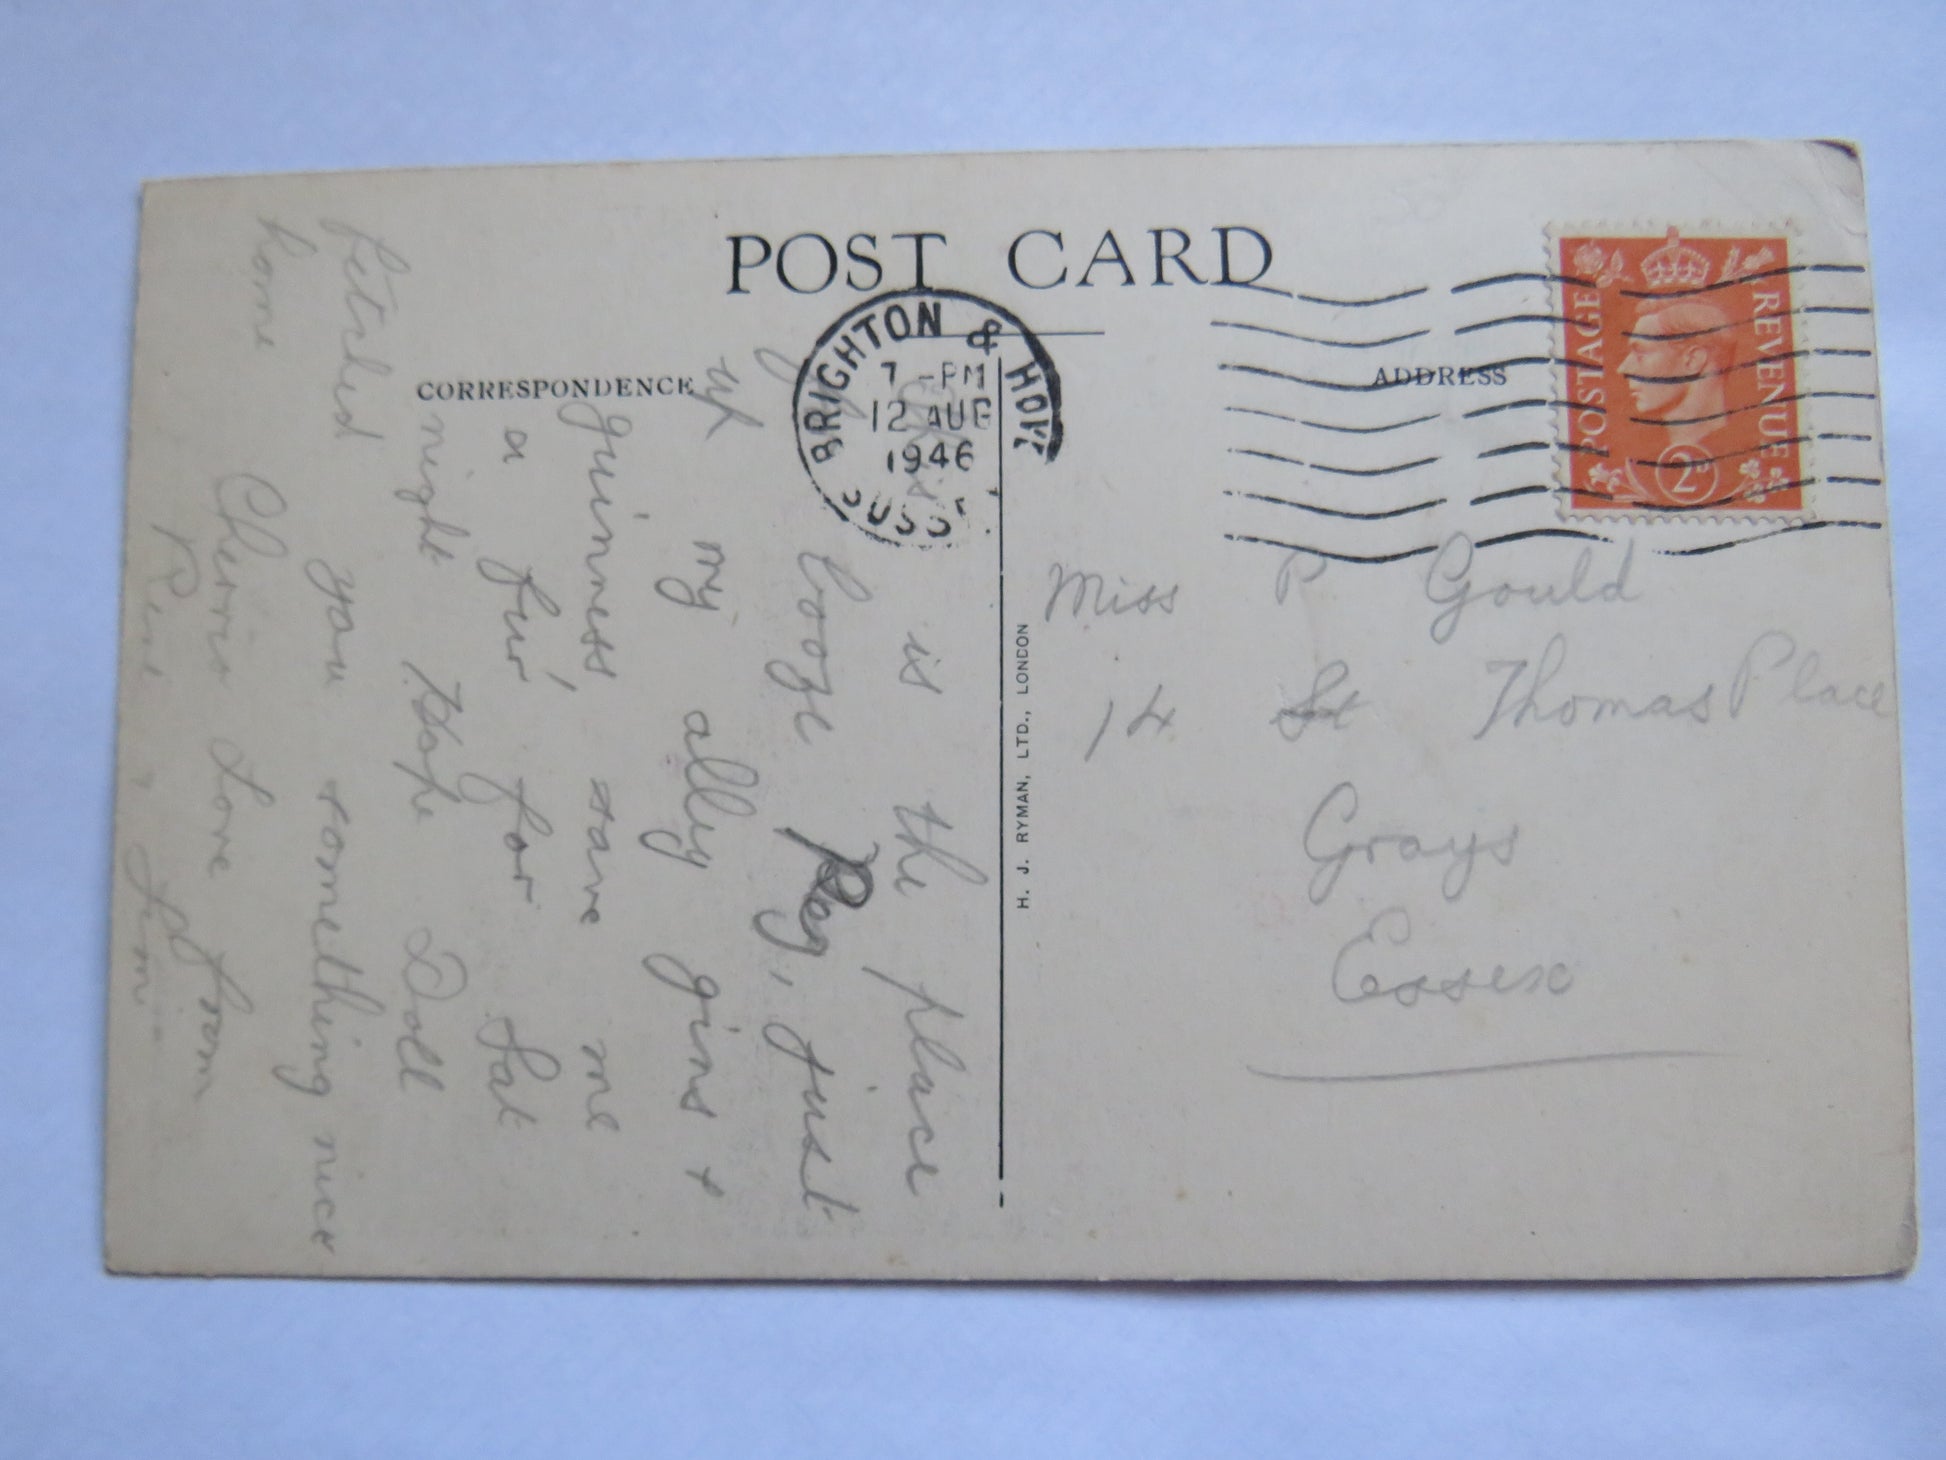 POST CARD
CORRESPONDENCE
ADDRESS
BRIGHTON & HOVE
7 - PM
12 AUG
1946
SUSSEX
POSTAGE
REVENUE
2D
This is the place
for booze Peg, just
up my ally gins +
guinness, save me
a fur, for Sat
night Hope Doll
fetched you something nice
home Cherrio Love from
Rene + Jim
H. J. RYMAN, LTD., LONDON
Miss P Gould
14 St Thomas Place
Grays
Essex